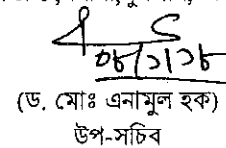 ০৮/১/১৮
(ড. মোঃ এনামুল হক)
উপ-সচিব